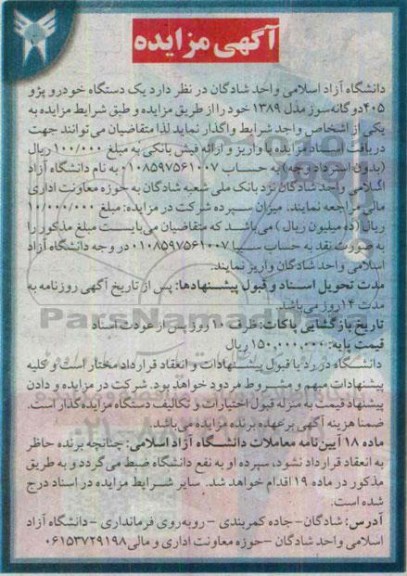 آگهی مزایده
دانشگاه آزاد اسلامی واحد شادگان در نظر دارد یک دستگاه خودرو پژو
۴۰۵ دوگانه‌سوز مدل ۱۳۸۹ خود را از طریق مزایده و طبق شرایط مزایده به
یکی از اشخاص واجد شرایط واگذار نماید لذا متقاضیان می توانند جهت
دریافت اسناد مزایده با واریز و ارائه فیش بانکی به مبلغ ۱۰۰/۰۰۰ ریال
(بدون استرداد وجه) به حساب ۰۱۰۸۵۹۷۵۶۱۰۰۷ به نام دانشگاه آزاد
اسلامی واحد شادگان نزد بانک ملی شعبه شادگان به حوزه معاونت اداری
مالی مراجعه نمایند. میزان سپرده شرکت در مزایده: مبلغ ۱۰/۰۰۰/۰۰۰
ریال (ده میلیون ریال) می باشد که متقاضیان می‌بایست مبلغ مذکور را
به صورت نقد به حساب سیبا ۰۱۰۸۵۹۷۵۶۱۰۰۷ در وجه دانشگاه آزاد
اسلامی واحد شادگان واریز نمایند.
مدت تحویل اسناد و قبول پیشنهادها: پس از تاریخ آگهی روزنامه به
مدت ۱۴ روز می باشد.
ParsNamadData
تاریخ بازگشایی پاکات: ظرف ۱۰ روز پس از عودت اسناد
قیمت پایه: ۱۵۰,۰۰۰,۰۰۰ ریال
دانشگاه در رد یا قبول پیشنهادات و انعقاد قرارداد مختار است و کلیه
پیشنهادات مبهم و مشروط مردود خواهد بود. شرکت در مزایده و دادن
پیشنهاد قیمت به منزله قبول اختیارات و تکالیف دستگاه مزایده گذار است.
ضمنا هزینه آگهی بر عهده برنده مزایده می باشد.
ماده ۱۸ آیین‌نامه معاملات دانشگاه آزاد اسلامی: چنانچه برنده حاظر
به انعقاد قرارداد نشود، سپرده او به نفع دانشگاه ضبط می گردد و به طریق
مذکور در ماده ۱۹ اقدام خواهد شد. سایر شرایط مزایده در اسناد درج
شده است.
آدرس: شادگان - جاده کمربندی - روبه‌روی فرمانداری - دانشگاه آزاد
اسلامی واحد شادگان - حوزه معاونت اداری و مالی ۰۶۱۵۳۷۲۹۱۹۸